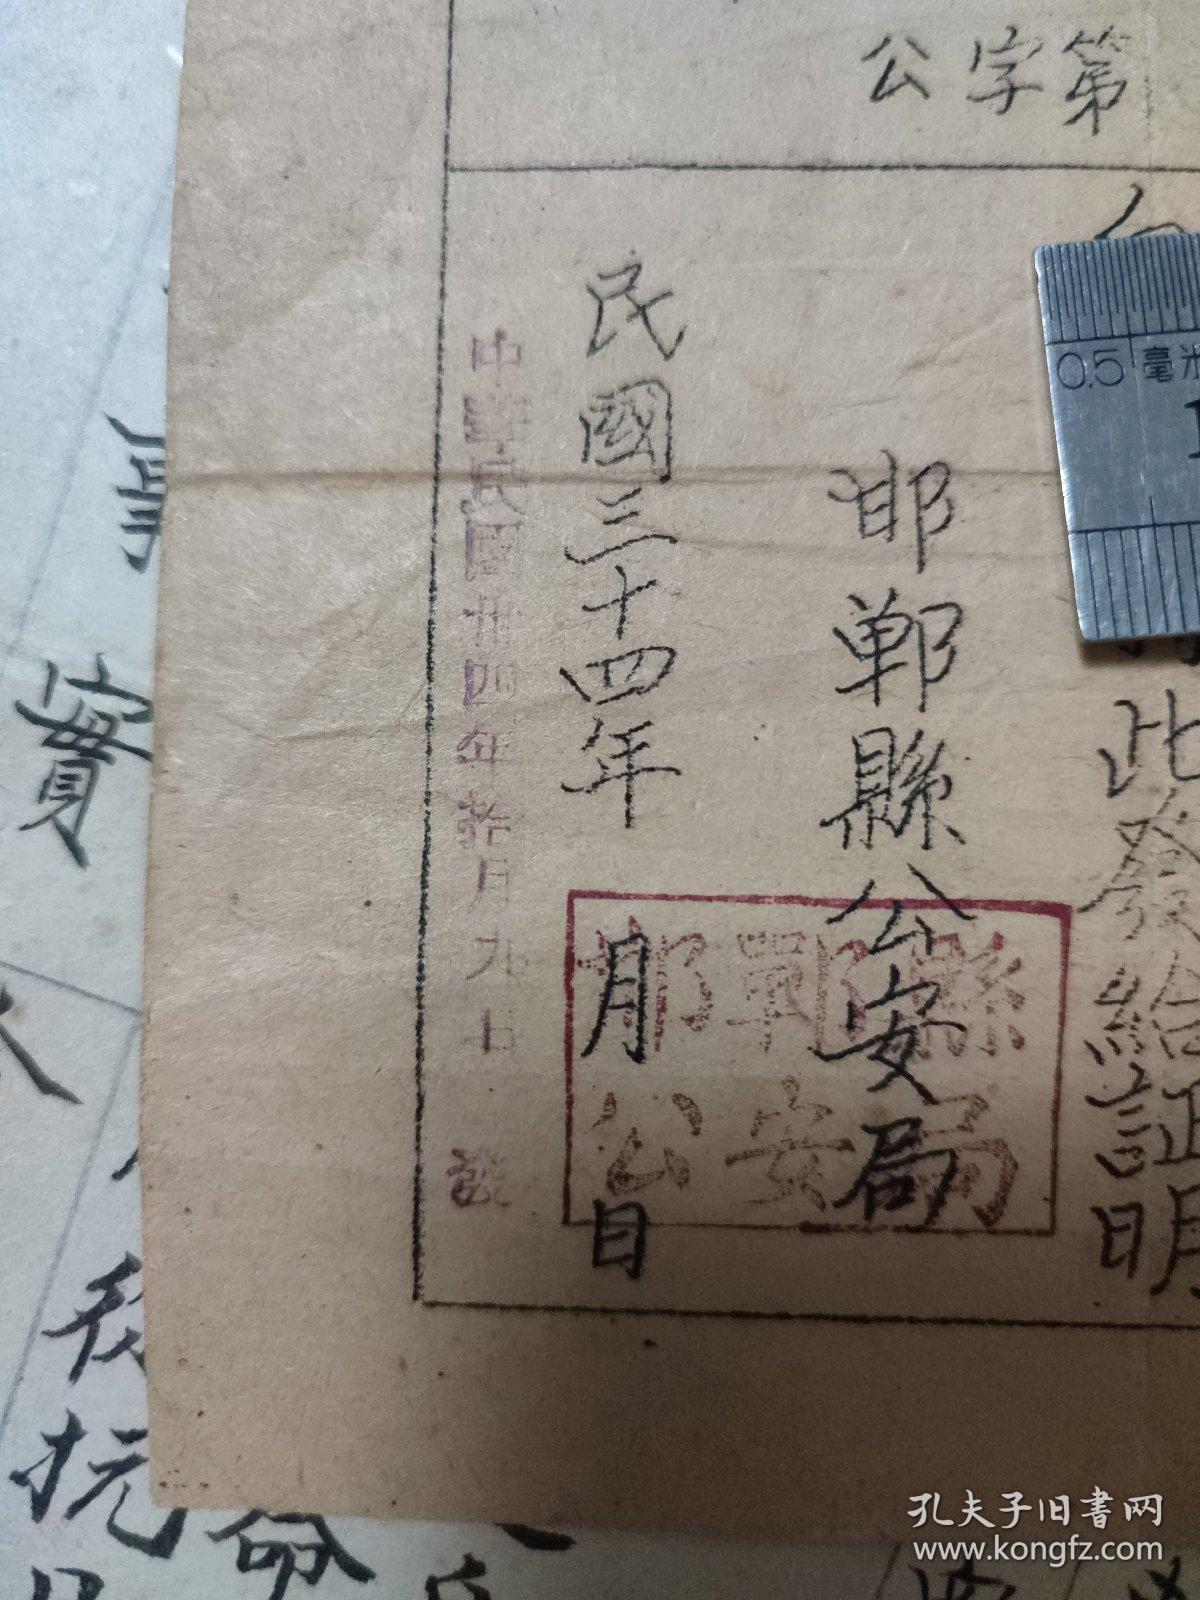 公字第
此發給証明
邯鄲縣公安局
民國三十四年 月 日
中華民國卅四年拾月九日 發
邯鄲縣
公安局
0.5毫米
1
實
抗
命
孔夫子旧書网
www.kongfz.com